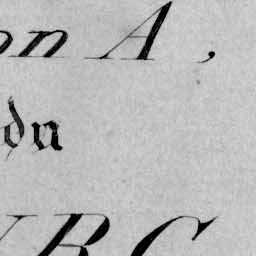 on A,
du
BC